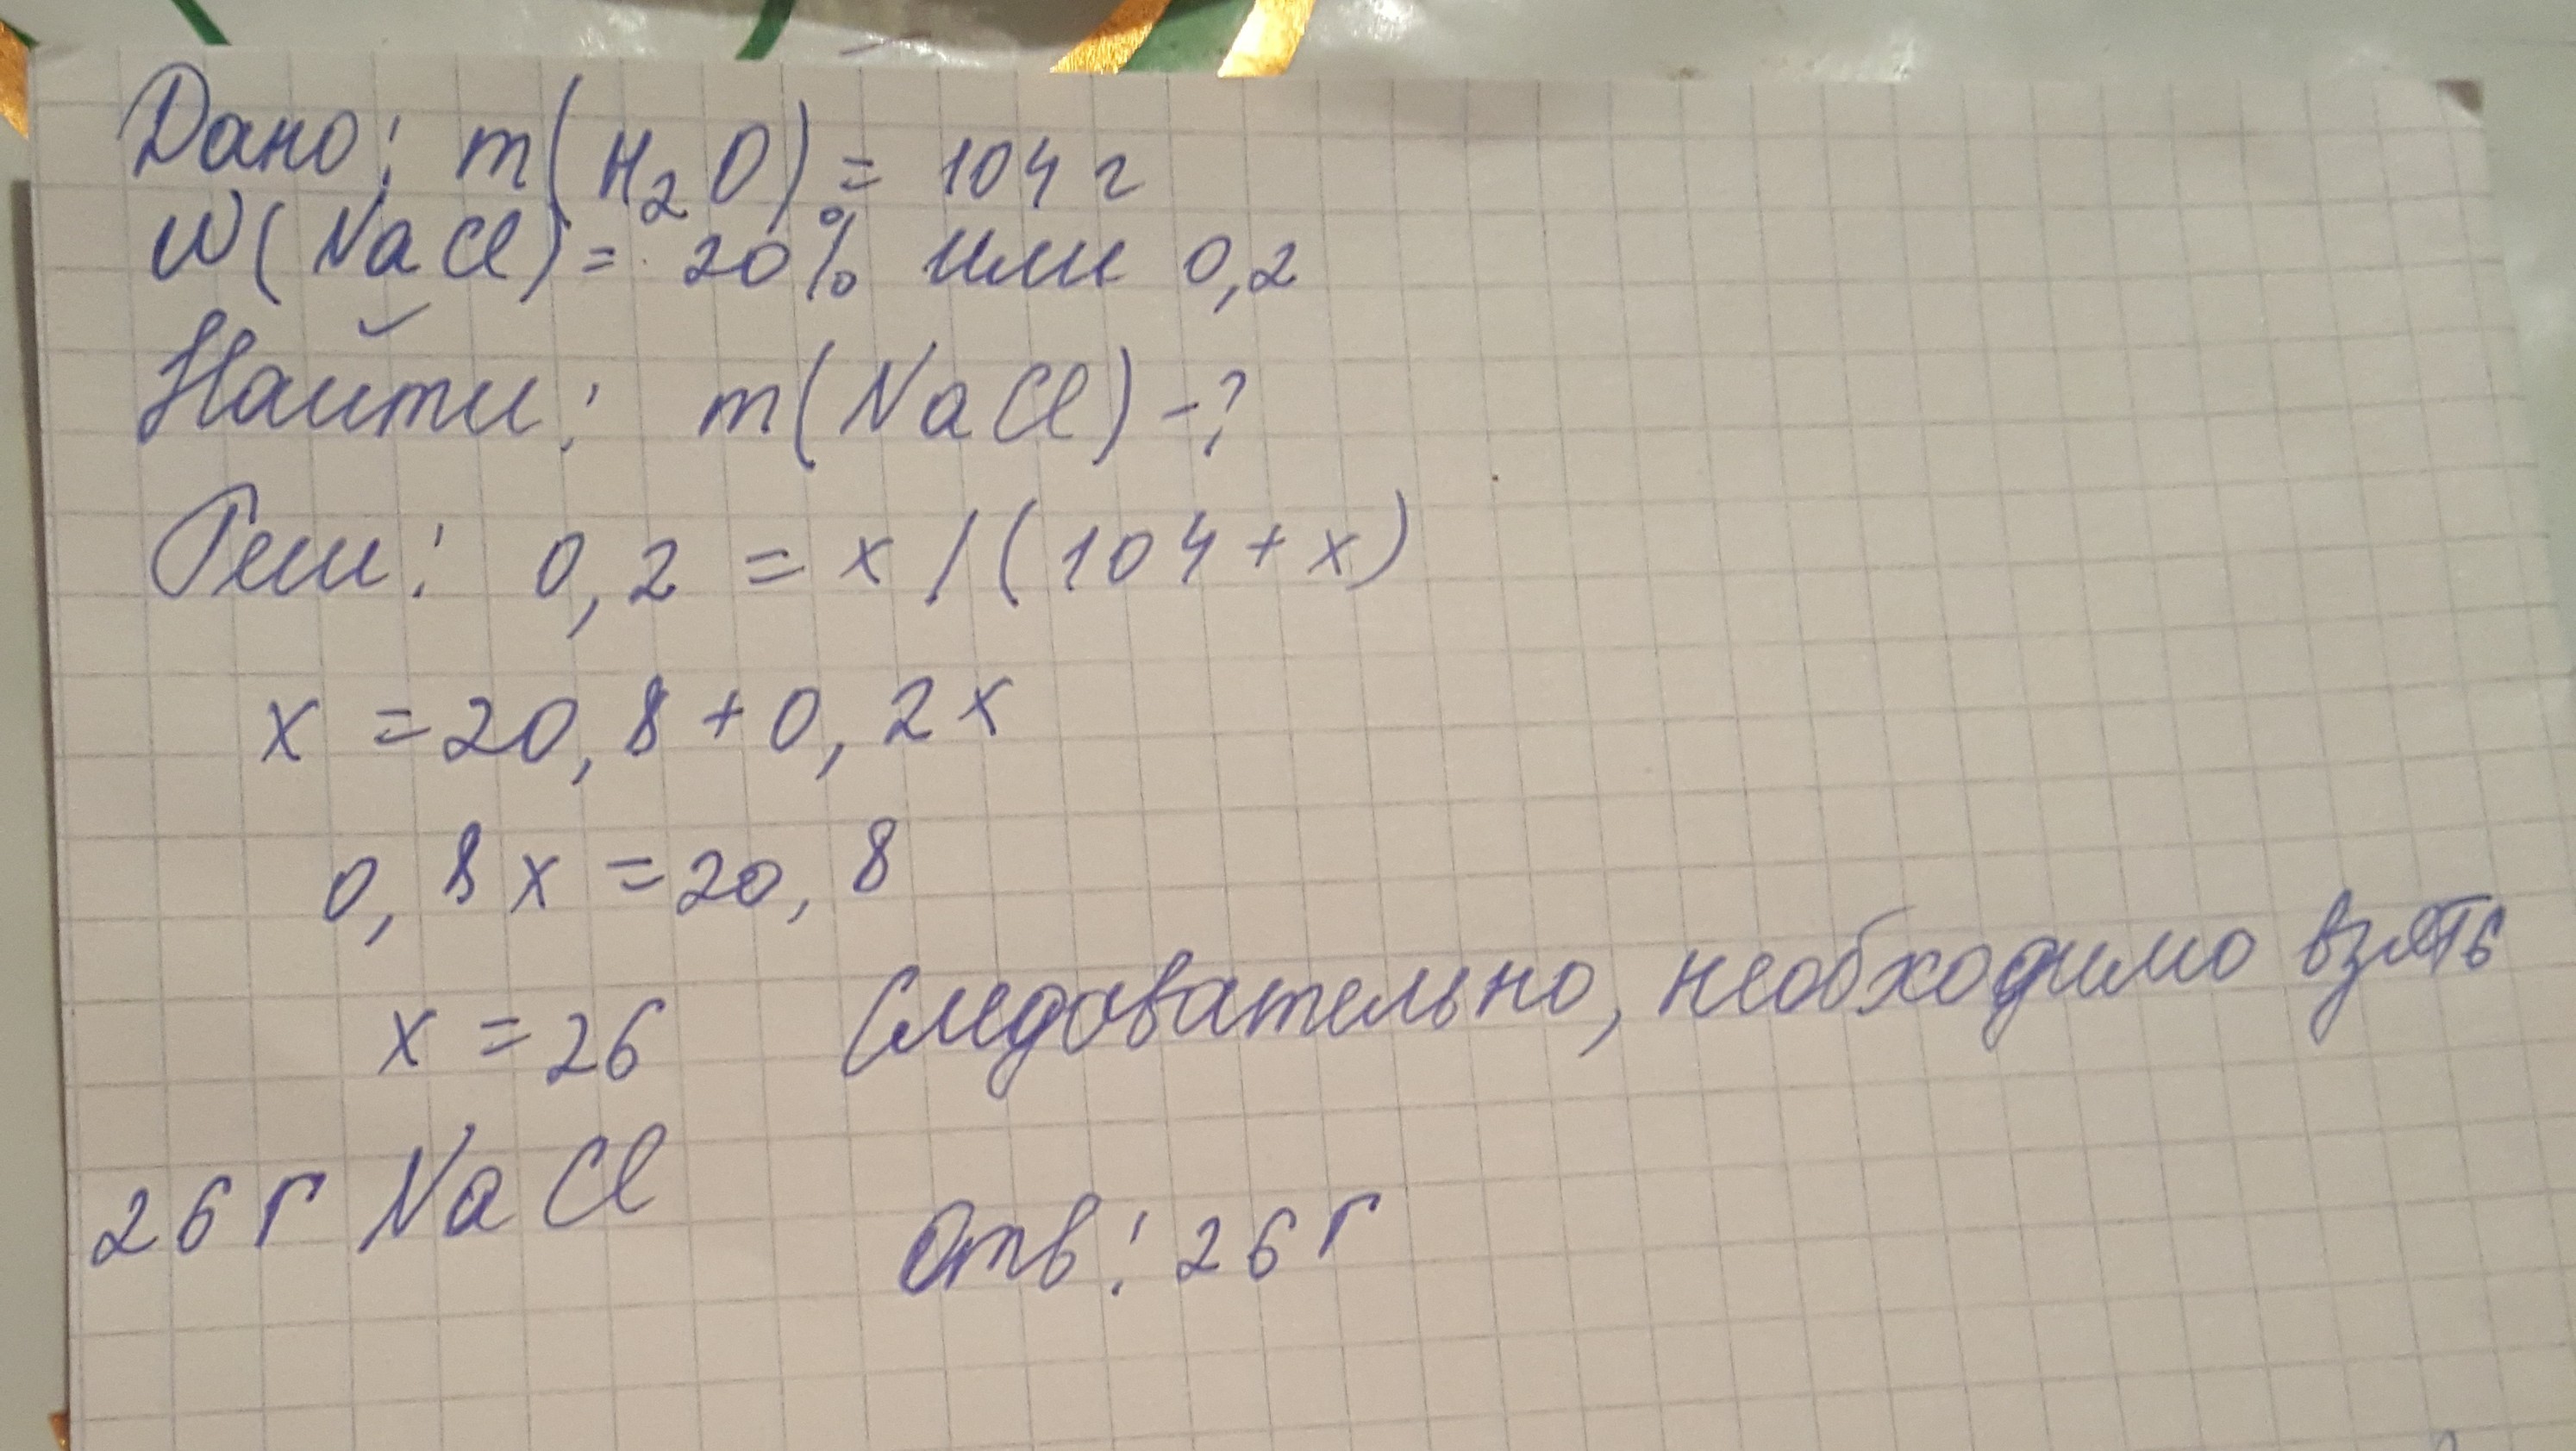 Дано: m(H₂O) = 104 г
W(NaCl) = 20% или 0,2
Найти: m(NaCl) - ?
Реш: 0,2 = x / (104 + x)
x = 20,8 + 0,2x
0,8x = 20,8
x = 26 Следовательно, необходимо взять
26 г NaCl Отв: 26 г